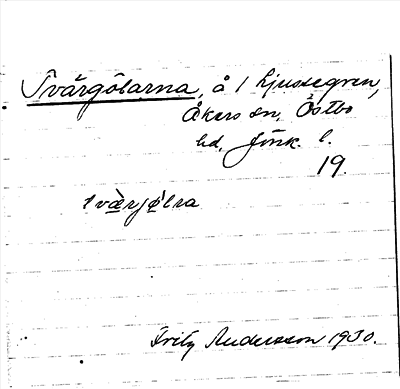 Tvärgölarna, å 1 Ljussegren,
Åkers sn, Östbo
hd, Jönk. l.
19.
tvæ̀rjø̀lra
Fritz Andersson 1930.